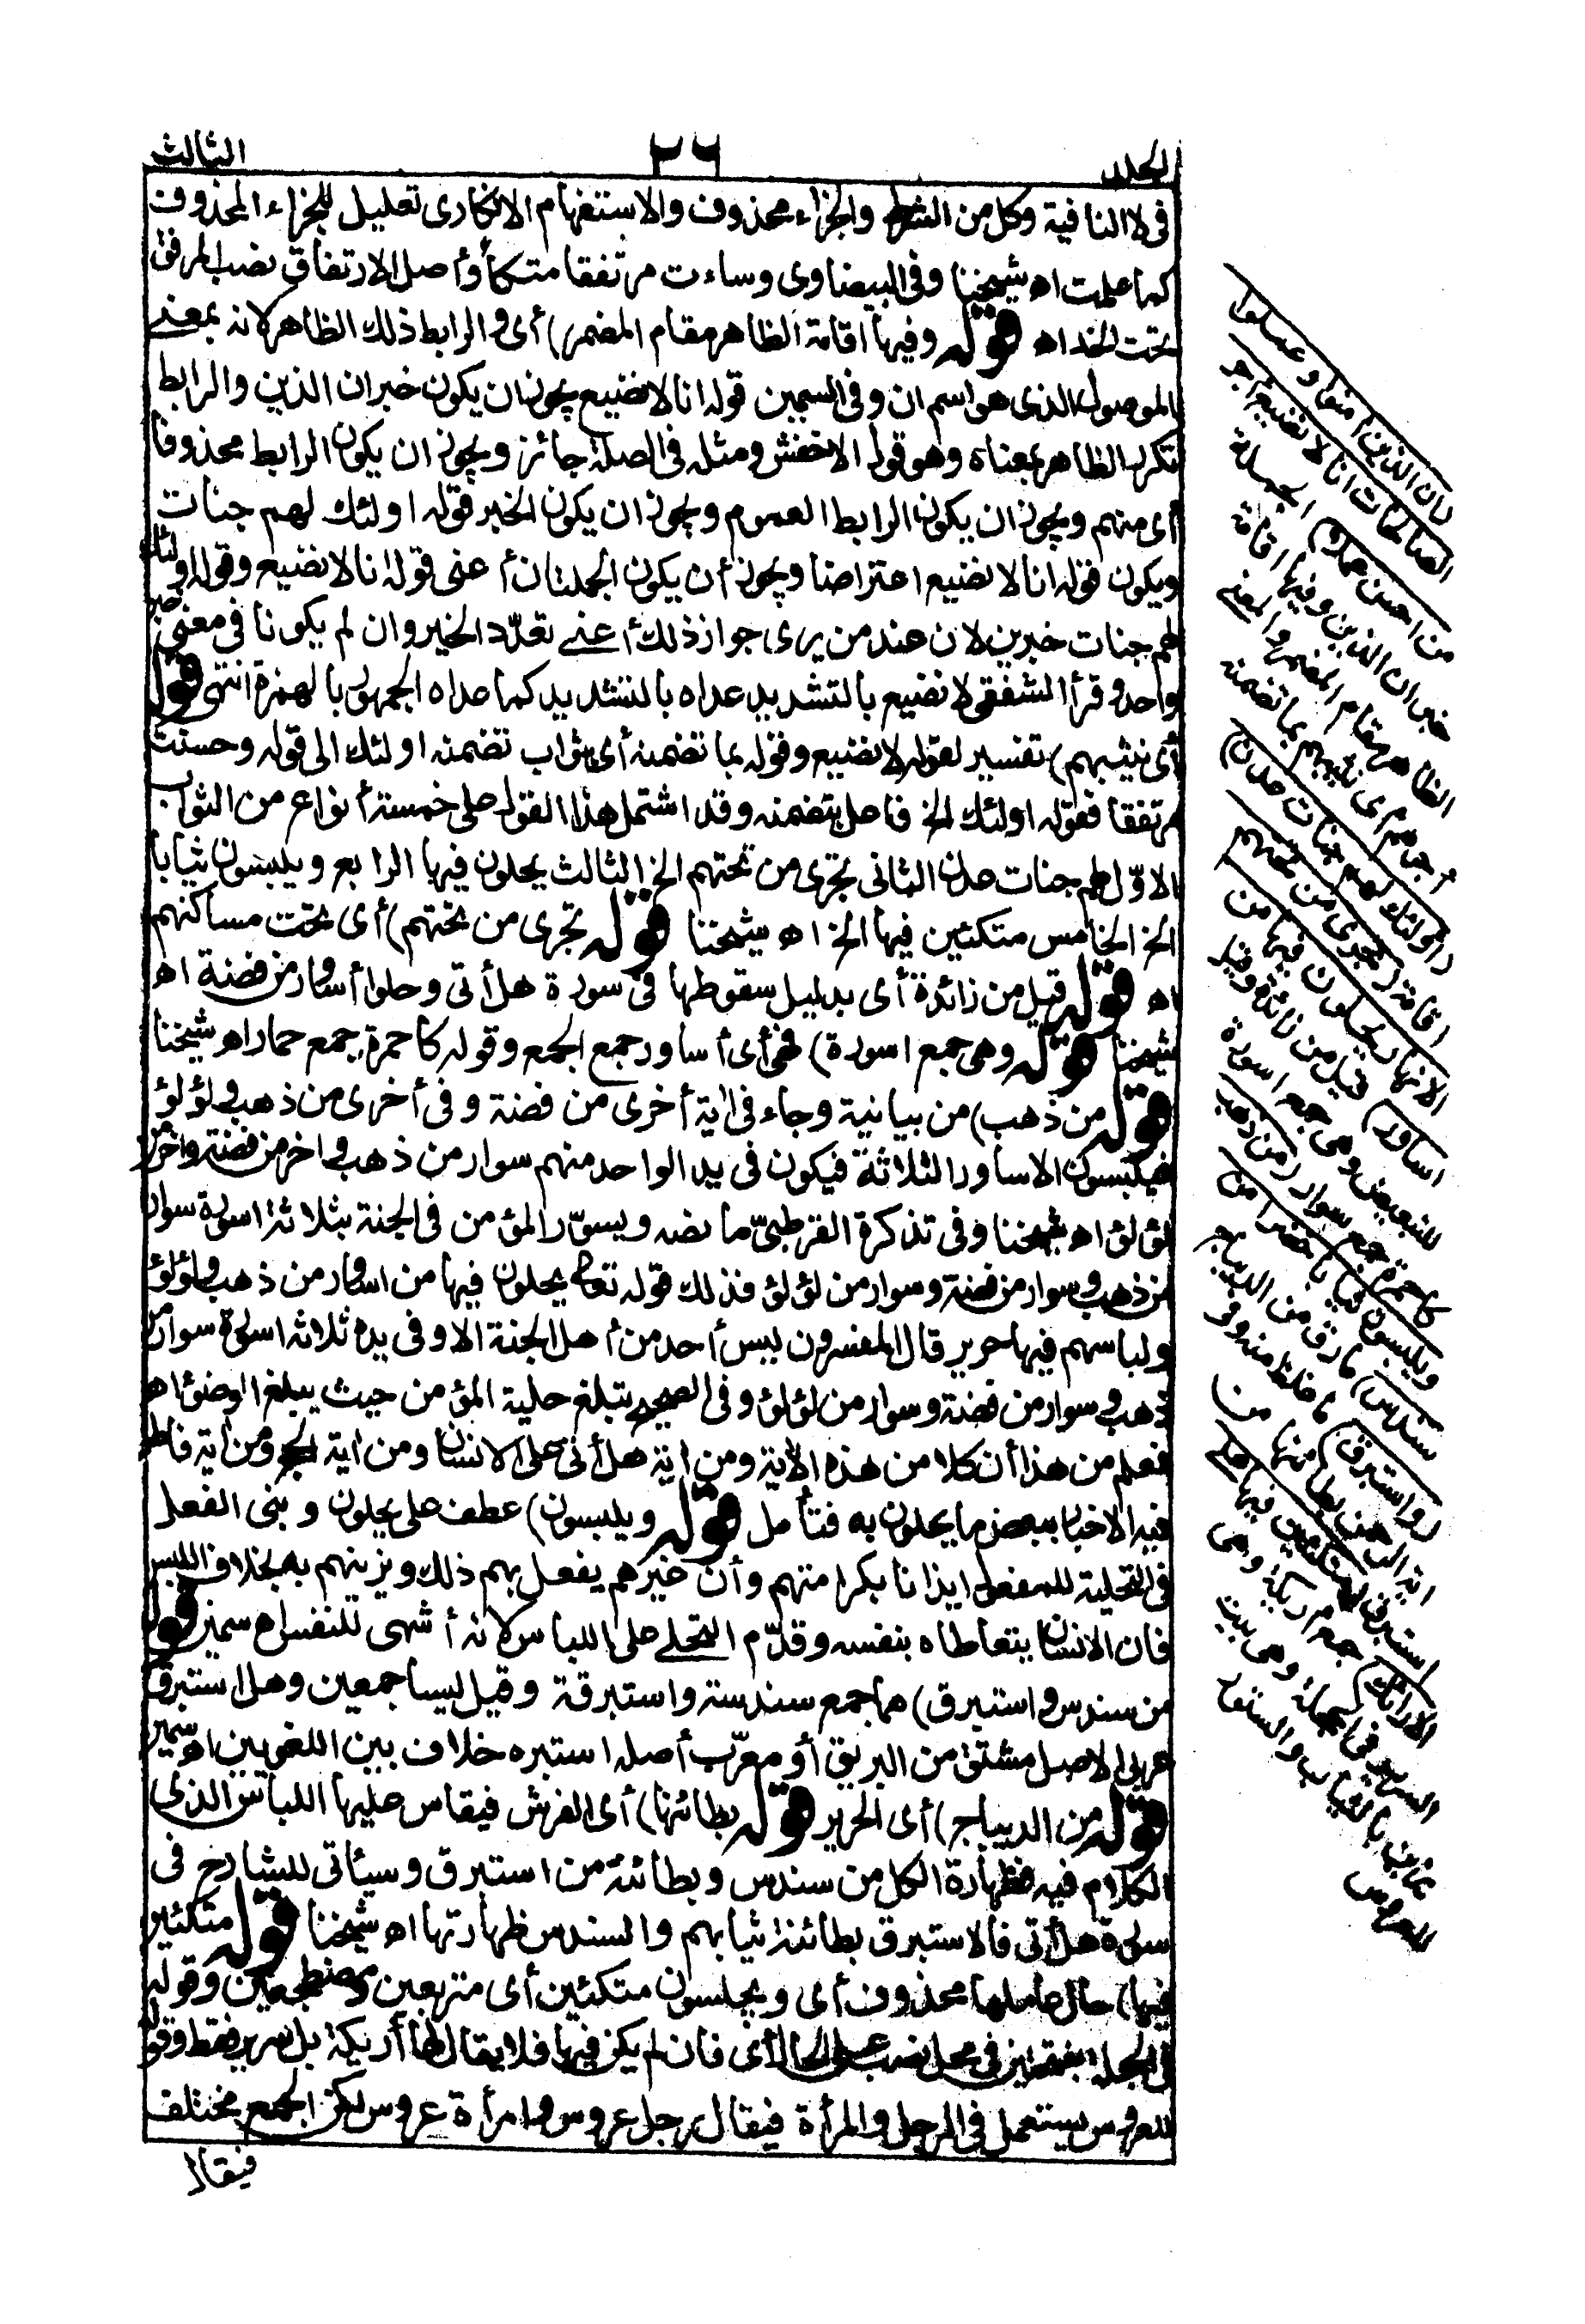 الجلد
٢٦
الثالث
فى لا النافية وكل من الشرط والجزاء محذوف والاستفهام الانكارى تعليل للجزاء المحذوف
كما علمت اه شيخنا وفى البيضاوى وساءت مرتفقا متكأ وأصل الارتفاق نصب المرفق
تحت الخد اه قوله وفيها اقامة الظاهر مقام المضمر) أى والرابط ذلك الظاهر لانه بمعنى
الموصول الذى هو اسم ان وفى السمين قوله انا لا نضيع يجوز ان يكون خبر ان الذين والرابط
تكرر الظاهر بمعناه وهو قول الاخفش ومثله فى الصلة جائز ويجوز ان يكون الرابط محذوفا
أى منهم ويجوز ان يكون الرابط العموم ويجوز ان يكون الخبر قوله اولئك لهم جنات
ويكون قوله انا لا نضيع اعتراضا ويجوز أن يكون الجملتان أعنى قوله انا لا نضيع وقوله اولئك
لهم جنات خبرين لان عند من يرى جواز ذلك أعنى تعدّد الخبر وان لم يكونا فى معنى خبر
واحد وقرأ الشفقى لا نضيع بالتشديد عداه بالتشديد كما عداه الجمهور بالهمزة انتهى قوله
أى نثيبهم) تفسير لقوله لا نضيع وقوله بما تضمنه أى بثواب تضمنه اولئك الى قوله وحسنت
مرتفقا فقوله اولئك الخ فاعل بتضمنه وقد اشتمل هذا القول على خمسة أنواع من الثواب
الاوّل لهم جنات عدن الثانى تجرى من تحتهم الخ الثالث يحلون فيها الرابع ويلبسون ثيابا
الخ الخامس متكئين فيها الخ اه شيخنا قوله تجرى من تحتهم) أى تحت مساكنهم
اه قوله قيل من زائدة أى بدليل سقوطها فى سورة هل أتى وحلوا أساور من فضة اه
شيخنا قوله وهى جمع اسورة) فهى أى أساور جمع الجمع وقوله كاحمرة جمع حمار اه شيخنا
قوله من ذهب) من بيانية وجاء فى اية أخرى من فضة وفى أخرى من ذهب ولؤلؤ
فيلبسون الاساور الثلاثة فيكون فى يد الواحد منهم سوار من ذهب واخر من فضة واخر من
لؤلؤ اه شيخنا وفى تذكرة القرطبىّ ما نصه ويسوّر المؤمن فى الجنة بثلاثة اسورة سوار
من ذهب وسوار من فضة وسوار من لؤلؤ فذلك قوله تعالى يحلون فيها من اساور من ذهب ولؤلؤ
ولباسهم فيها حرير قال المفسرون ليس أحد من أهل الجنة الا وفى يده ثلاثة اسورة سوار من
ذهب وسوار من فضة وسوار من لؤلؤ وفى الصحيح تبلغ حلية المؤمن حيث يبلغ الوضوء اه
فعلم من هذا أن كلا من هذه الآية ومن اية هل أتى على الانسان ومن اية الحج ومن اية فاطر
فيه الاخبار ببعض ما يحلون به فتأمل قوله ويلبسون) عطف على يحلون وبنى الفعل
فى التحلية للمفعول ايذانا بكرامتهم وأن غيرهم يفعل بهم ذلك ويزينهم به بخلاف اللبس
فان الانسان يتعاطاه بنفسه وقدّم التحلى على اللباس لانه أشهى للنفس اه سمين قوله
من سندس واستبرق) هما جمع سندسة واستبرقة وقيل ليسا جمعين وهل استبرق
عربى الاصل مشتق من البريق أو معرّب أصله استبره خلاف بين اللغويين اه سمين
قوله من الديباج) أى الحرير قوله بطائنها) أى الفرش فيقاس عليها اللباس الذى
الكلام فيه فظهارة الكل من سندس وبطائنة من استبرق وسيأتى للشارح فى
سورة هل أتى فالاستبرق بطائنة ثيابهم والسندس ظهارتها اه شيخنا قوله متكئين
فيها) حال عاملها محذوف أى ويجلسون متكئين أى متربعين ومضطجعين وقوله
فى الحجلة بفتحتين فى محل نصب على الحال أى فان لم يكن فيها فلا يقال لها أريكة بل سرير فقط وقوله
للعروس يستعمل فى الرجل والمرأة فيقال رجل عروس وامرأة عروس لكن الجمع مختلف
فيقال
(ان الذين امنوا وعملوا
الصالحات انا لا نضيع اجر
من احسن عملا) الجملة
خبر ان الذين وفيها اقامة
الظاهر مقام المضمر والمعنى
أجرهم اى نثيبهم بما تضمنه
(اولئك لهم جنات عدن)
اقامة (تجرى من تحتهم
الانهار يحلون فيها من
اساور) قيل من زائدة وقيل
للتبعيض وهى جمع اسورة
كاحمرة جمع سوار (من ذهب
ويلبسون ثيابا خضرا من
سندس) ما رق من الديباج
(واستبرق) ما غلظ منه وفى
اية الرحمن بطائنها من
استبرق (متكئين فيها على
الارائك) جمع اريكة وهى
السرير فى الحجلة وهى بيت
يزين بالثياب والستور
للعروس